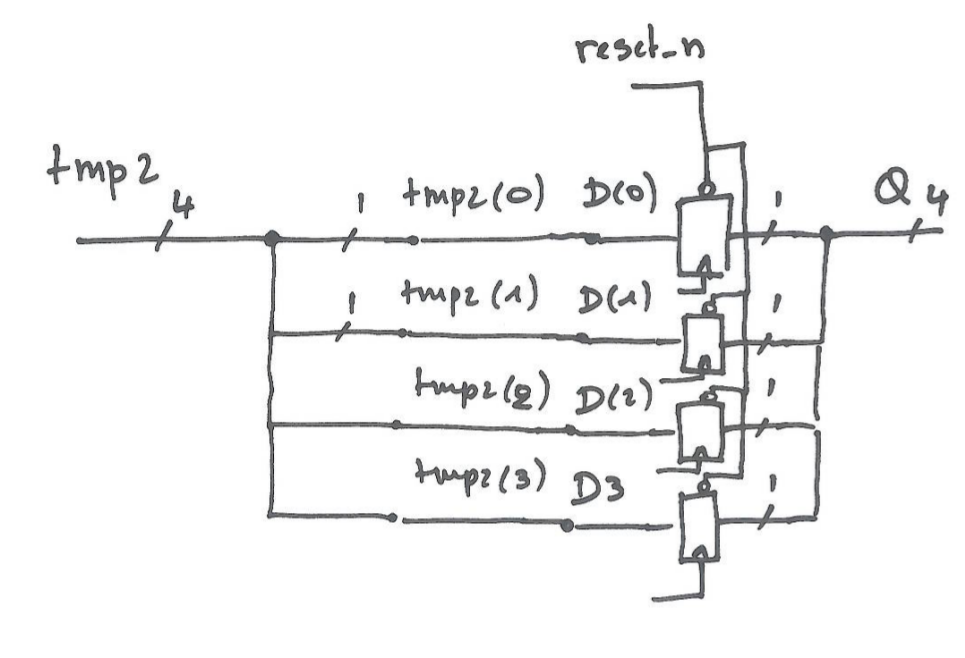 reset_n
tmp2 4
1 tmp2(0) D(0) 1 Q 4
1 tmp2(1) D(1) 1
tmp2(2) D(2) 1
tmp2(3) D3 1